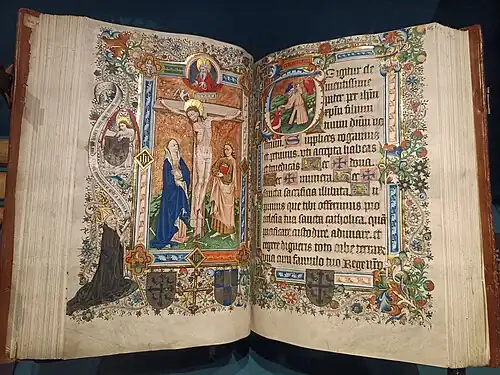 igitur cle
mentissime
pater per ihm
xpm filium
tuum dnm no
strum. Supplices rogamus
et petimus. uti accepta habeas
et benedicas hec ✠ dona.
hec ✠ munera. hec ✠
sancta sacrificia illibata. In
primis que tibi offerimus pro
ecclesia tua sancta catholica. quā
pacificare custodire. adunare. et
regere digneris toto orbe terrarū
una cum famulo tuo Rege nro